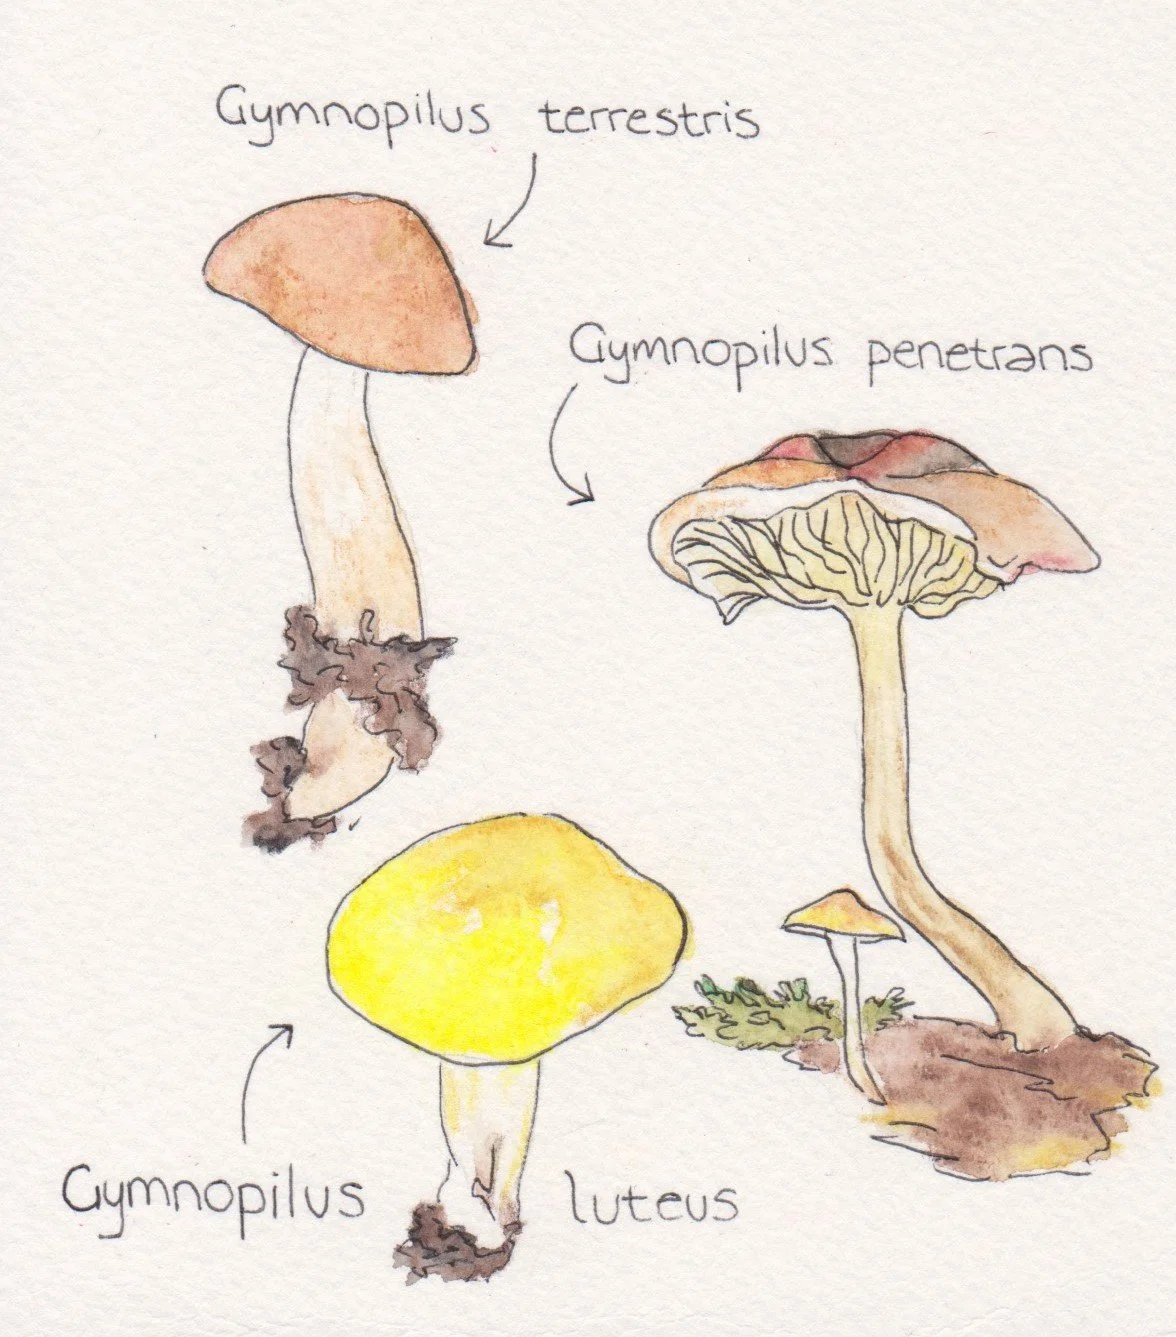 Gymnopilus terrestris
Gymnopilus penetrans
Gymnopilus luteus